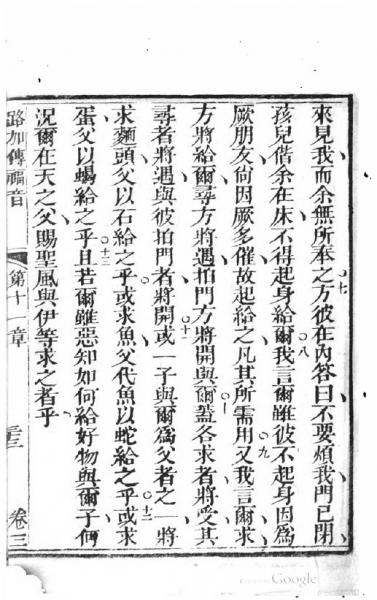 來見我而余無所奉之○七方彼在內答曰不要煩我門已閉
孩兒偕余在床不得起身給爾○八我言爾雖彼不起身因爲
厥朋友尚因厥多催故起給之凡其所需用○九又我言爾求
方將給爾尋方將遇拍門方將開與爾○十蓋各求者將受其
尋者將遇與彼拍門者將開○十一或一子與爾爲父者之一將
求麵頭父以石給之乎或求魚父代魚以蛇給之乎○十二或求
蛋父以蝎給之乎○十三且若爾雖惡知如何給好物與爾子倆
況爾在天之父賜聖風與伊等求之者乎
路加傳福音
第十一章
卷三
Google